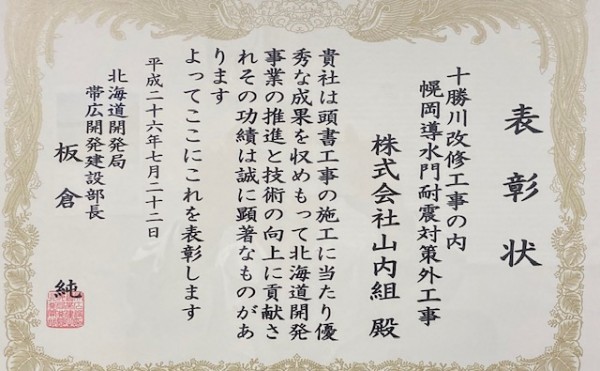 表彰状
十勝川改修工事の内
幌岡導水門耐震対策外工事
株式会社山内組 殿
貴社は頭書工事の施工に当たり優
秀な成果を収めもって北海道開発
事業の推進と技術の向上に貢献さ
れその功績は誠に顕著なものがあ
ります
よってここにこれを表彰します
平成二十六年七月二十二日
北海道開発局
帯広開発建設部長
板倉 純